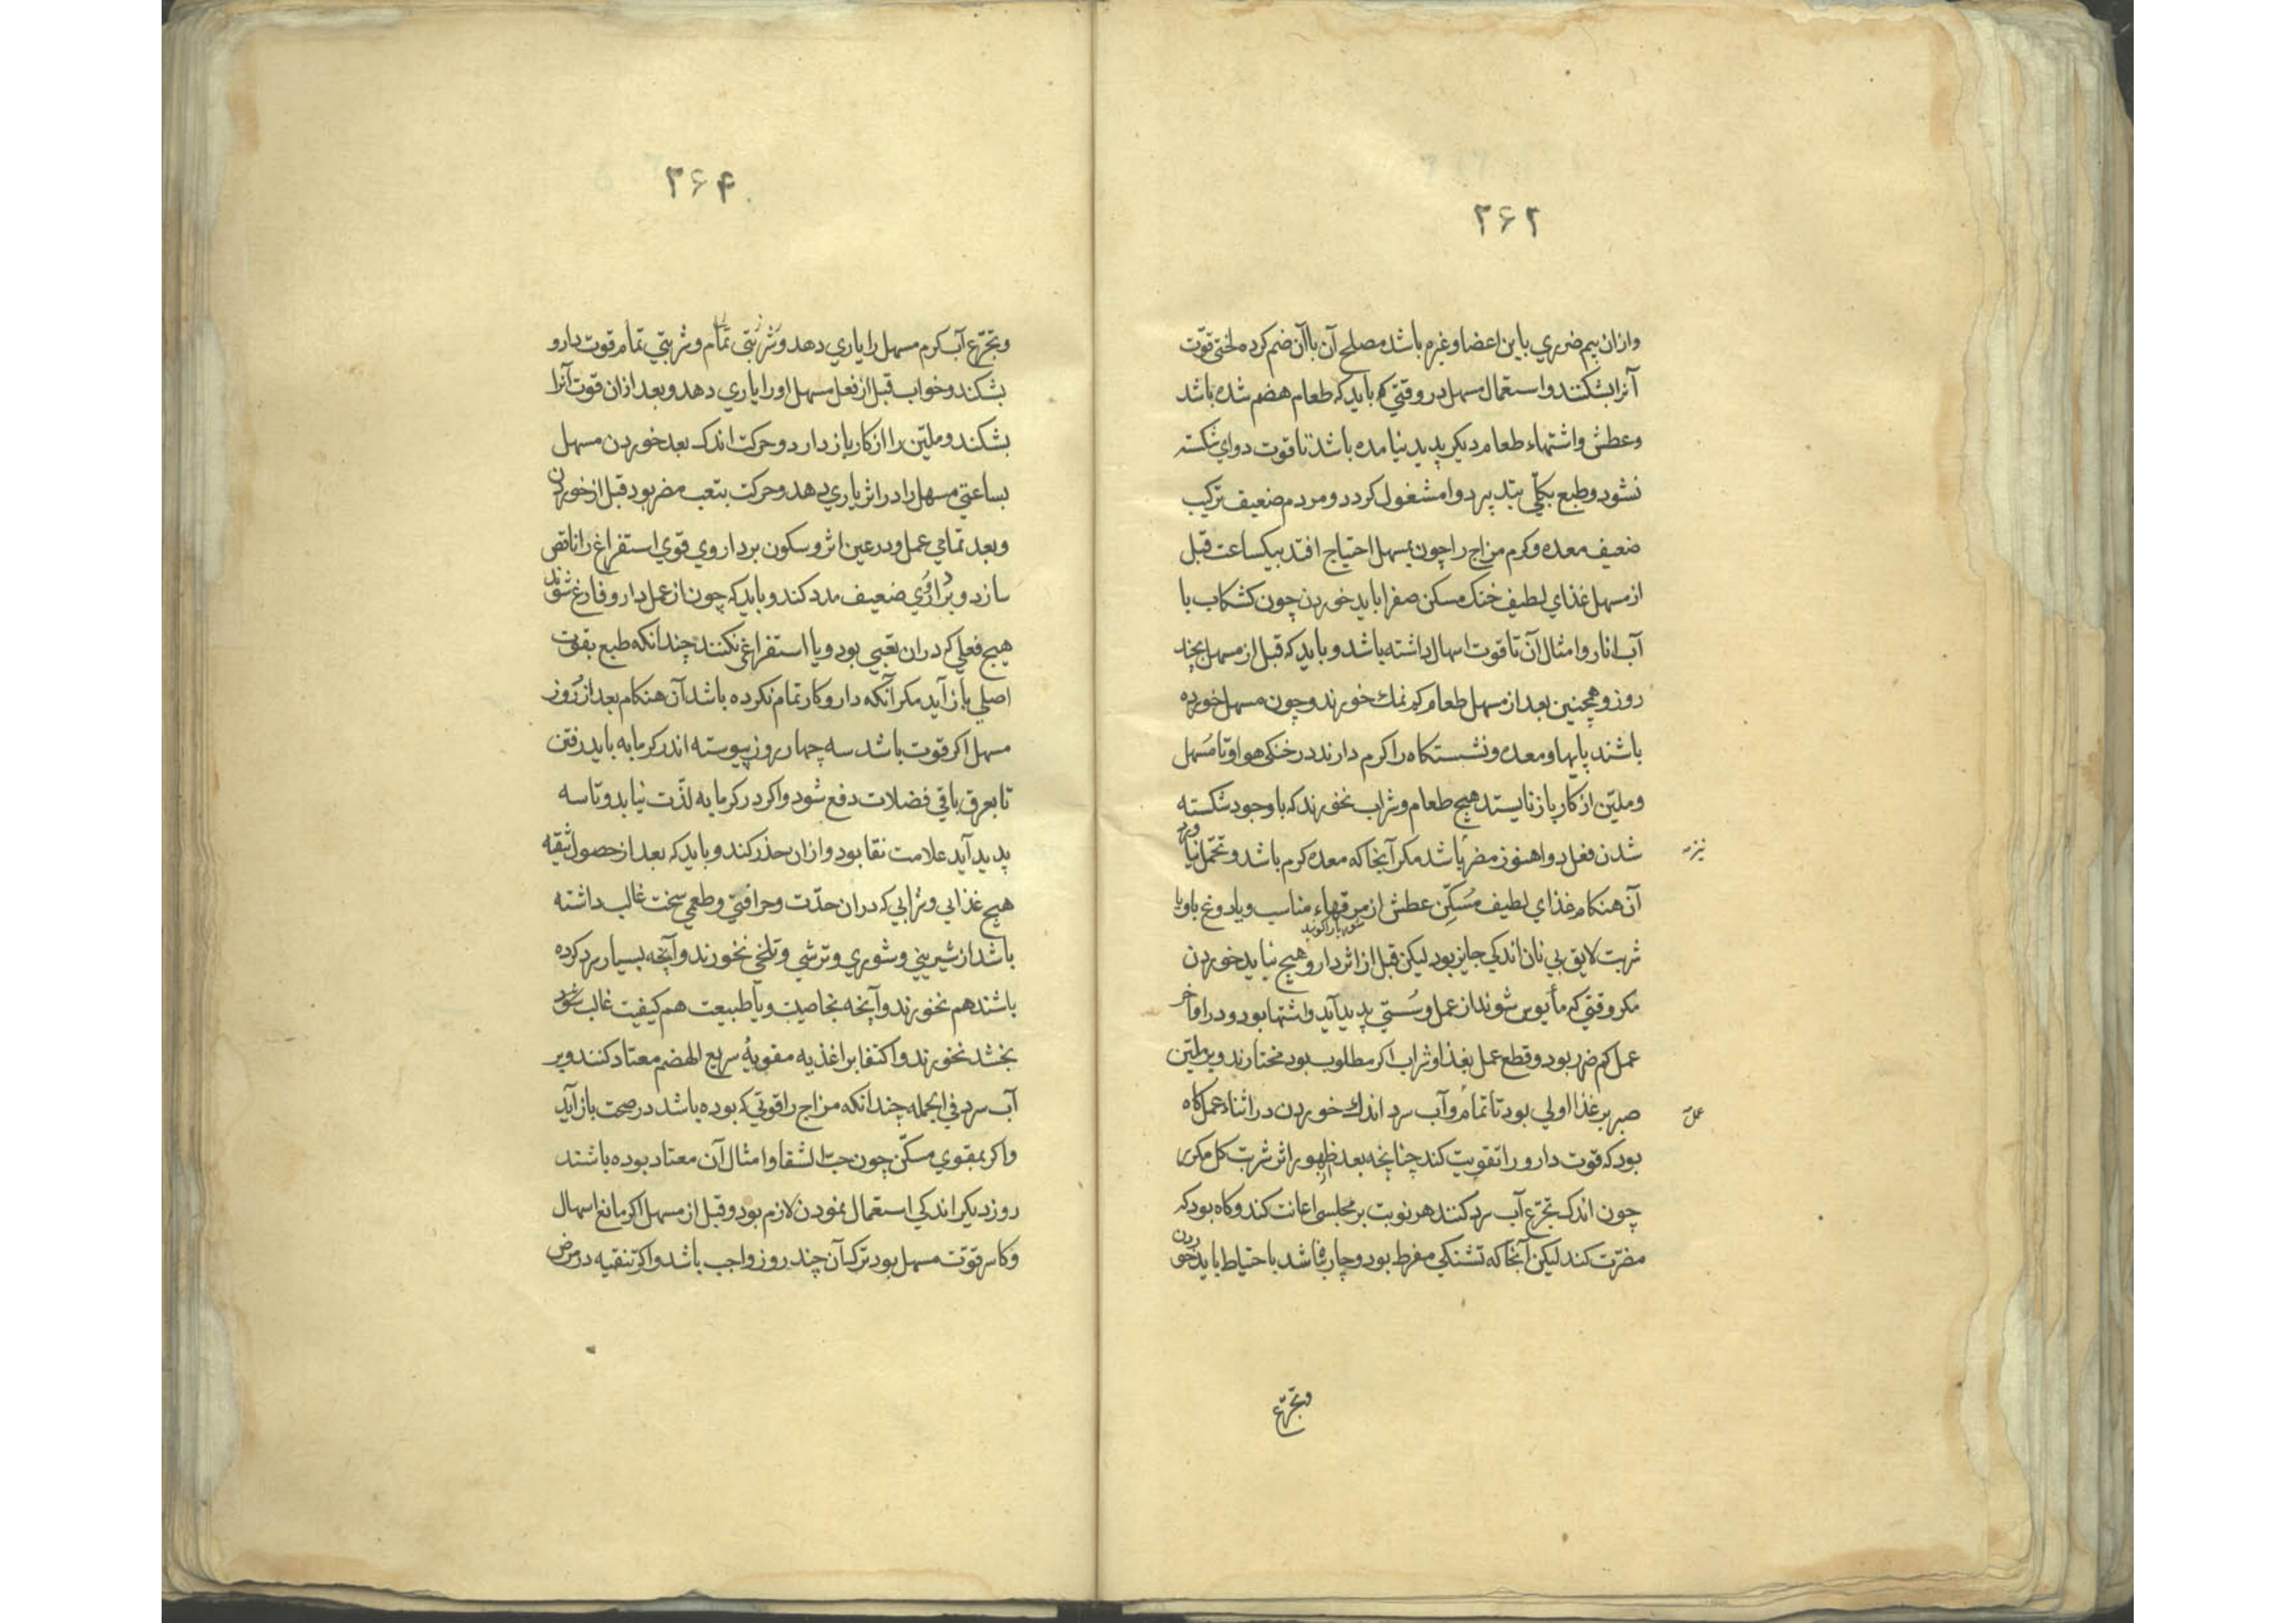 ۲۶۲
وازان بیم ضرري باین اعضا وغیره باشد مصلح آن باآن ضم کرده لختی قوّت
آنرا بشکنند واستعمال مسهل در وقتي کم باید که طعام هضم شده باشد
وعطش واشتهاء طعام دیکر پدید نیامده باشد تا قوت دواي شکسته
نشود وطبع بکلّي بتدبیر دوا مشغول کردد ومردم ضعیف ترکیب
ضعیف معده وکرم مزاج را چون بمسهل احتیاج افتد بیکساعت قبل
از مسهل غذاي لطیف خنک مسکن صفرا باید خوردن چون کشکاب با
آب انار وامثال آن تا قوت اسهال داشته باشد وباید که قبل از مسهل بچند
روز وهمچنین بعد از مسهل طعام کم نمك خورند وچون مسهل خورده
باشند پایها ومعده ونشستکاه را کرم دارند در خنکی هوا وتا مُسهل
وملیّن از کار باز نایستد هیچ طعام وشراب نخورند که باوجود شکسته
شدن فعل دوا هنوز مضر باشد مکر آنجا که معده کرم باشد وتحمّل نیاورد
نیزمه
آن هنکام غذاي لطیف مُسَکِّن عطش از مرقهاء مناسب ویا دوغ باویا
شوربا را کویند
شربت لایق بي نان اندکي جایز بود لیکن قبل از اثر دارو هیچ نیاید خوردن
مکر وقتي که مأیوس شوند از عمل وسُستي پدید آید واشتها بود ودر اواخر
عمل کم ضرر بود وقطع عمل بغذا وشراب اکر مطلوب بود مختارند وبر ملیّن
صبر بر غذا اولي بود تا تمام وآب سرد اندك خوردن در اثناء عمل کاه
عمل
بود که قوت دارو را تقویت کند چنانچه بعد ظهور اثر شربت کل مکرر
چون اندک تجرّع آب سرد کنند هر نوبت بر مجلسی اعانت کند وکاه بود که
مضرّت کند لیکن آنجا که تشنکي مفرط بود وچاره نباشد باحتیاط باید خوردن
وتجرّع
۲۶۴
وتجرّع آب کرم مسهل را یاري دهد وشربتی تمام وشربتي تمام قوت دارو
بشکند وخواب قبل از فعل مسهل اورا یاري دهد وبعد ازان قوت آنرا
بشکند وملیّن را از کار باز دارد وحرکت اندک بعد خوردن مسهل
بساعتي مسهل را در اثر یاري دهد وحرکت بتعب مضر بود قبل از خوردن
وبعد تمامي عمل ودر عین اثر وسکون بر داروي قوي استفراغ را ناقص
سازد وبر داروي ضعیف مدد کند وباید که چون از عمل دارو فارغ شوند
هیچ فعلي که دران تعبي بود ویا استفراغي نکنند چندانکه طبع بقوت
اصلي باز آید مکر آنکه دارو کار تمام نکرده باشد آن هنکام بعد از روز
مسهل اکر قوت باشد سه چهار روز پیوسته اندر کرمابه باید رفتن
تا بعرق باقي فضلات دفع شود واکر در کرمابه لذّت نیابد وتاسه
پدید آید علامت نقا بود وازان حذر کند وباید که بعد از حصول تنقیه
هیچ غذایي وشرابي که دران حدّت وحرافتي وطعمي سخت غالب داشته
باشد از شیریني وشوري وترشي وتلخي نخورند وآنچه بسیار سرد کرده
باشند هم نخورند وآنچه بخاصیت ویا طبیعت هم کیفیت غالب شود
بخشد نخورند واکتفا بر اغذیه مقویهٔ سریع الهضم معتاد کنند وبر
آب سرد في الجمله چندانکه مزاج را قوتي که بوده باشد در صحت باز آید
واکر بمقوي مسکّن چون حبّ الشفا وامثال آن معتاد بوده باشند
روز دیکر اندکي استعمال نمودن لازم بود وقبل از مسهل اکر مانع اسهال
وکاسر قوّت مسهل بود ترک آن چند روز واجب باشد واکر تنقیه در مرض